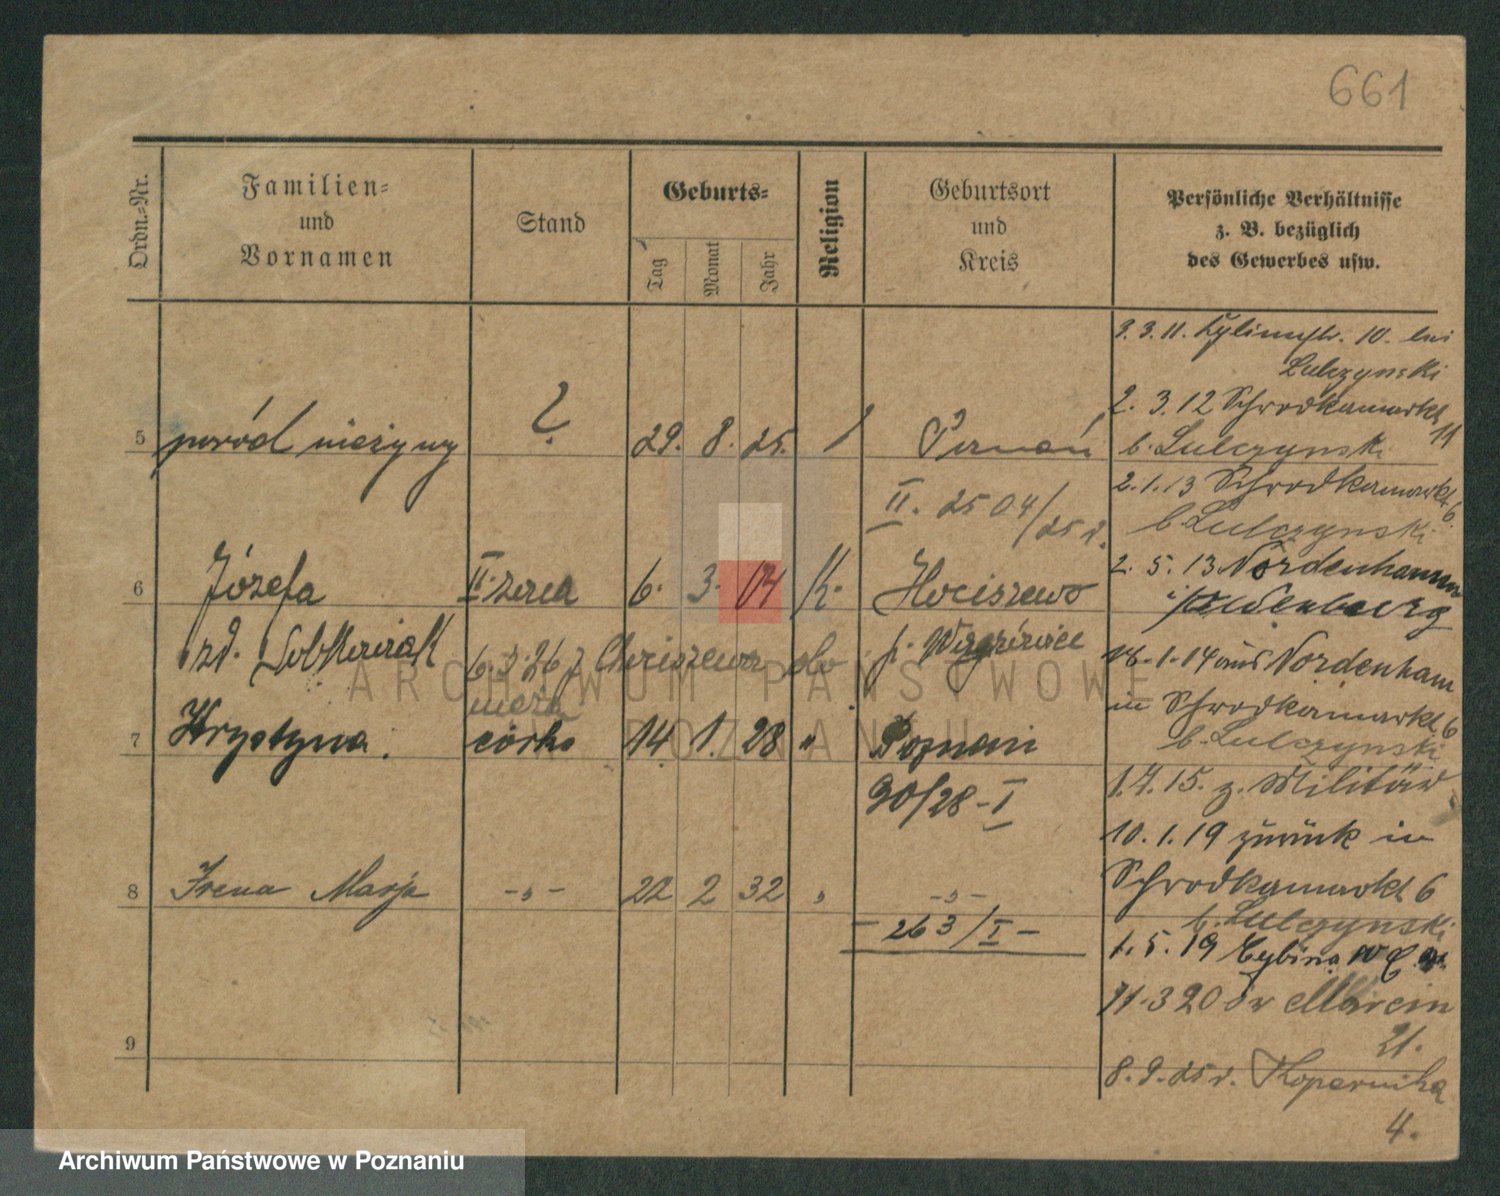 661
Ordn.-Nr.
Familien-
und
Vornamen
Stand
Geburts-
Tag
Monat
Jahr
Religion
Geburtsort
und
Kreis
Persönliche Verhältnisse
z. B. bezüglich
des Gewerbes usw.
5 poród nieżywy ? 29. 8. 25. Poznań
II. 2504/25 r.
6 Józefa II. żona 6. 3. 04 K. Chociszewo
zd. Sobkowiak 6. 2. 26 z Chociszewa p. Wągrówiec
7 Krystyna. córka 14 1. 28 " Poznań
90/28-I
8 Irena Marja -„- 22 2 32 „ -„-
- 263/I -
9
3. 3. 11. 10. bei
Lulczynski
2. 3. 12 Schrodkamarkt 11
b. Lulczynski
2. 1. 13 Schrodkamarkt 6
b. Lulczynski
2. 5. 13 Nordenhamm
i/Oldenburg
1. 14 aus Nordenham
in Schrodkamarkt 6
b. Lulczynski
1. 4. 15. z. Militär
10. 1. 19 zurück in
Schrodkamarkt 6
b. Lulczynski
1. 5. 19 Cybina 10
11. 3 20 św Marcin
21.
8. 9. 25 r. Kopernika
4.
ARCHIWUM PAŃSTWOWE
W POZNANIU
Archiwum Państwowe w Poznaniu